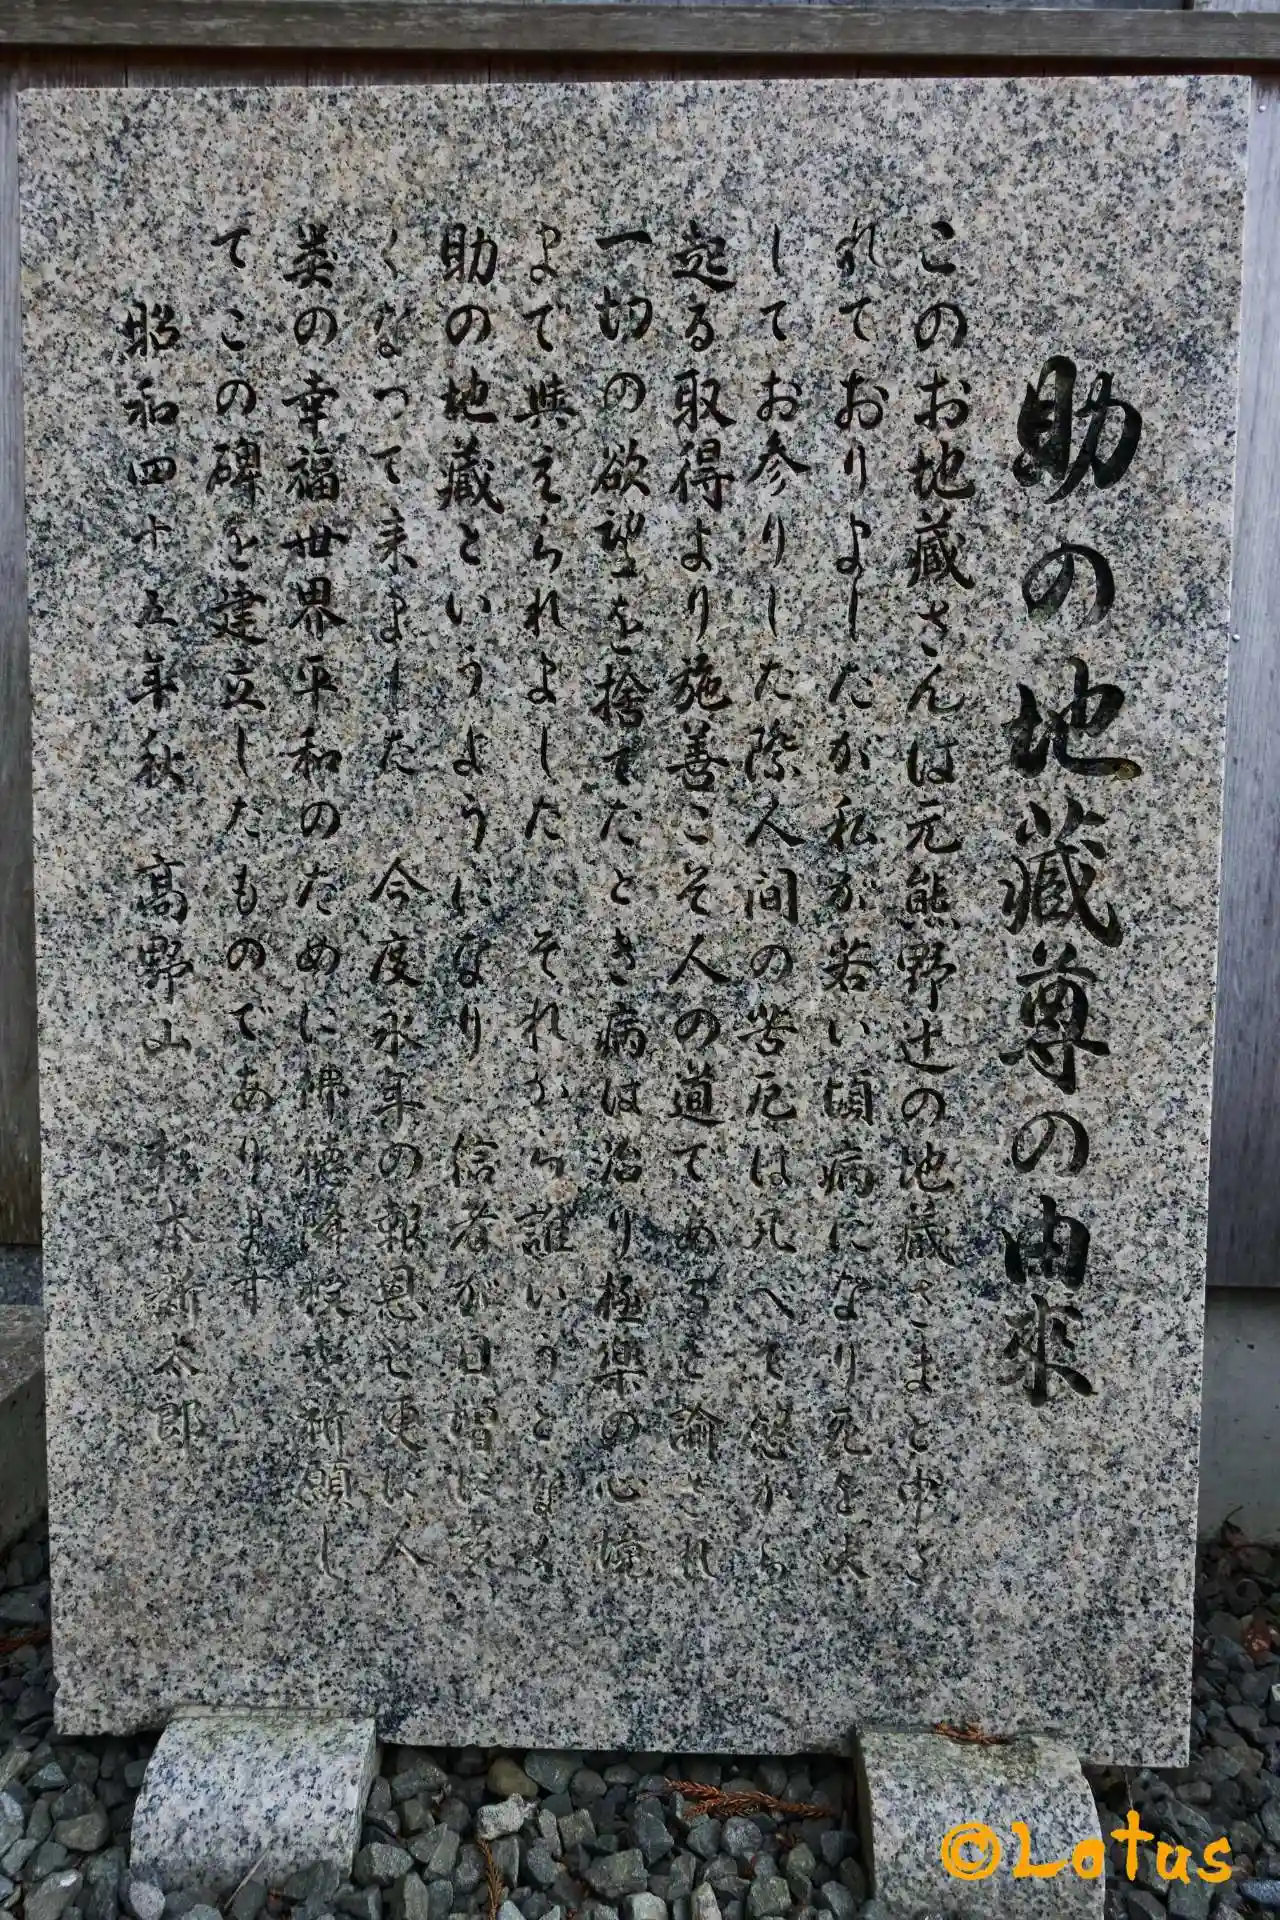 助の地蔵尊の由来
このお地蔵さんは元熊野辻の地蔵さまと申さ
れておりましたが私が若い頃病になり死を決
してお参りした際人間の苦厄は凡べて慾から
迄る取得より施善こそ人の道であると諭され
一切の欲望を捨てたとき病は治り極楽の心境
まで与えられましたそれから誰いうとなく
助の地蔵というようになり信者が日増に多
くなって来ました今度永年の報恩と更に人
類の幸福世界平和のために佛徳を祈願し
てこの碑を建立したものであります
昭和四十五年秋 高野山 杉本新太郎
©Lotus